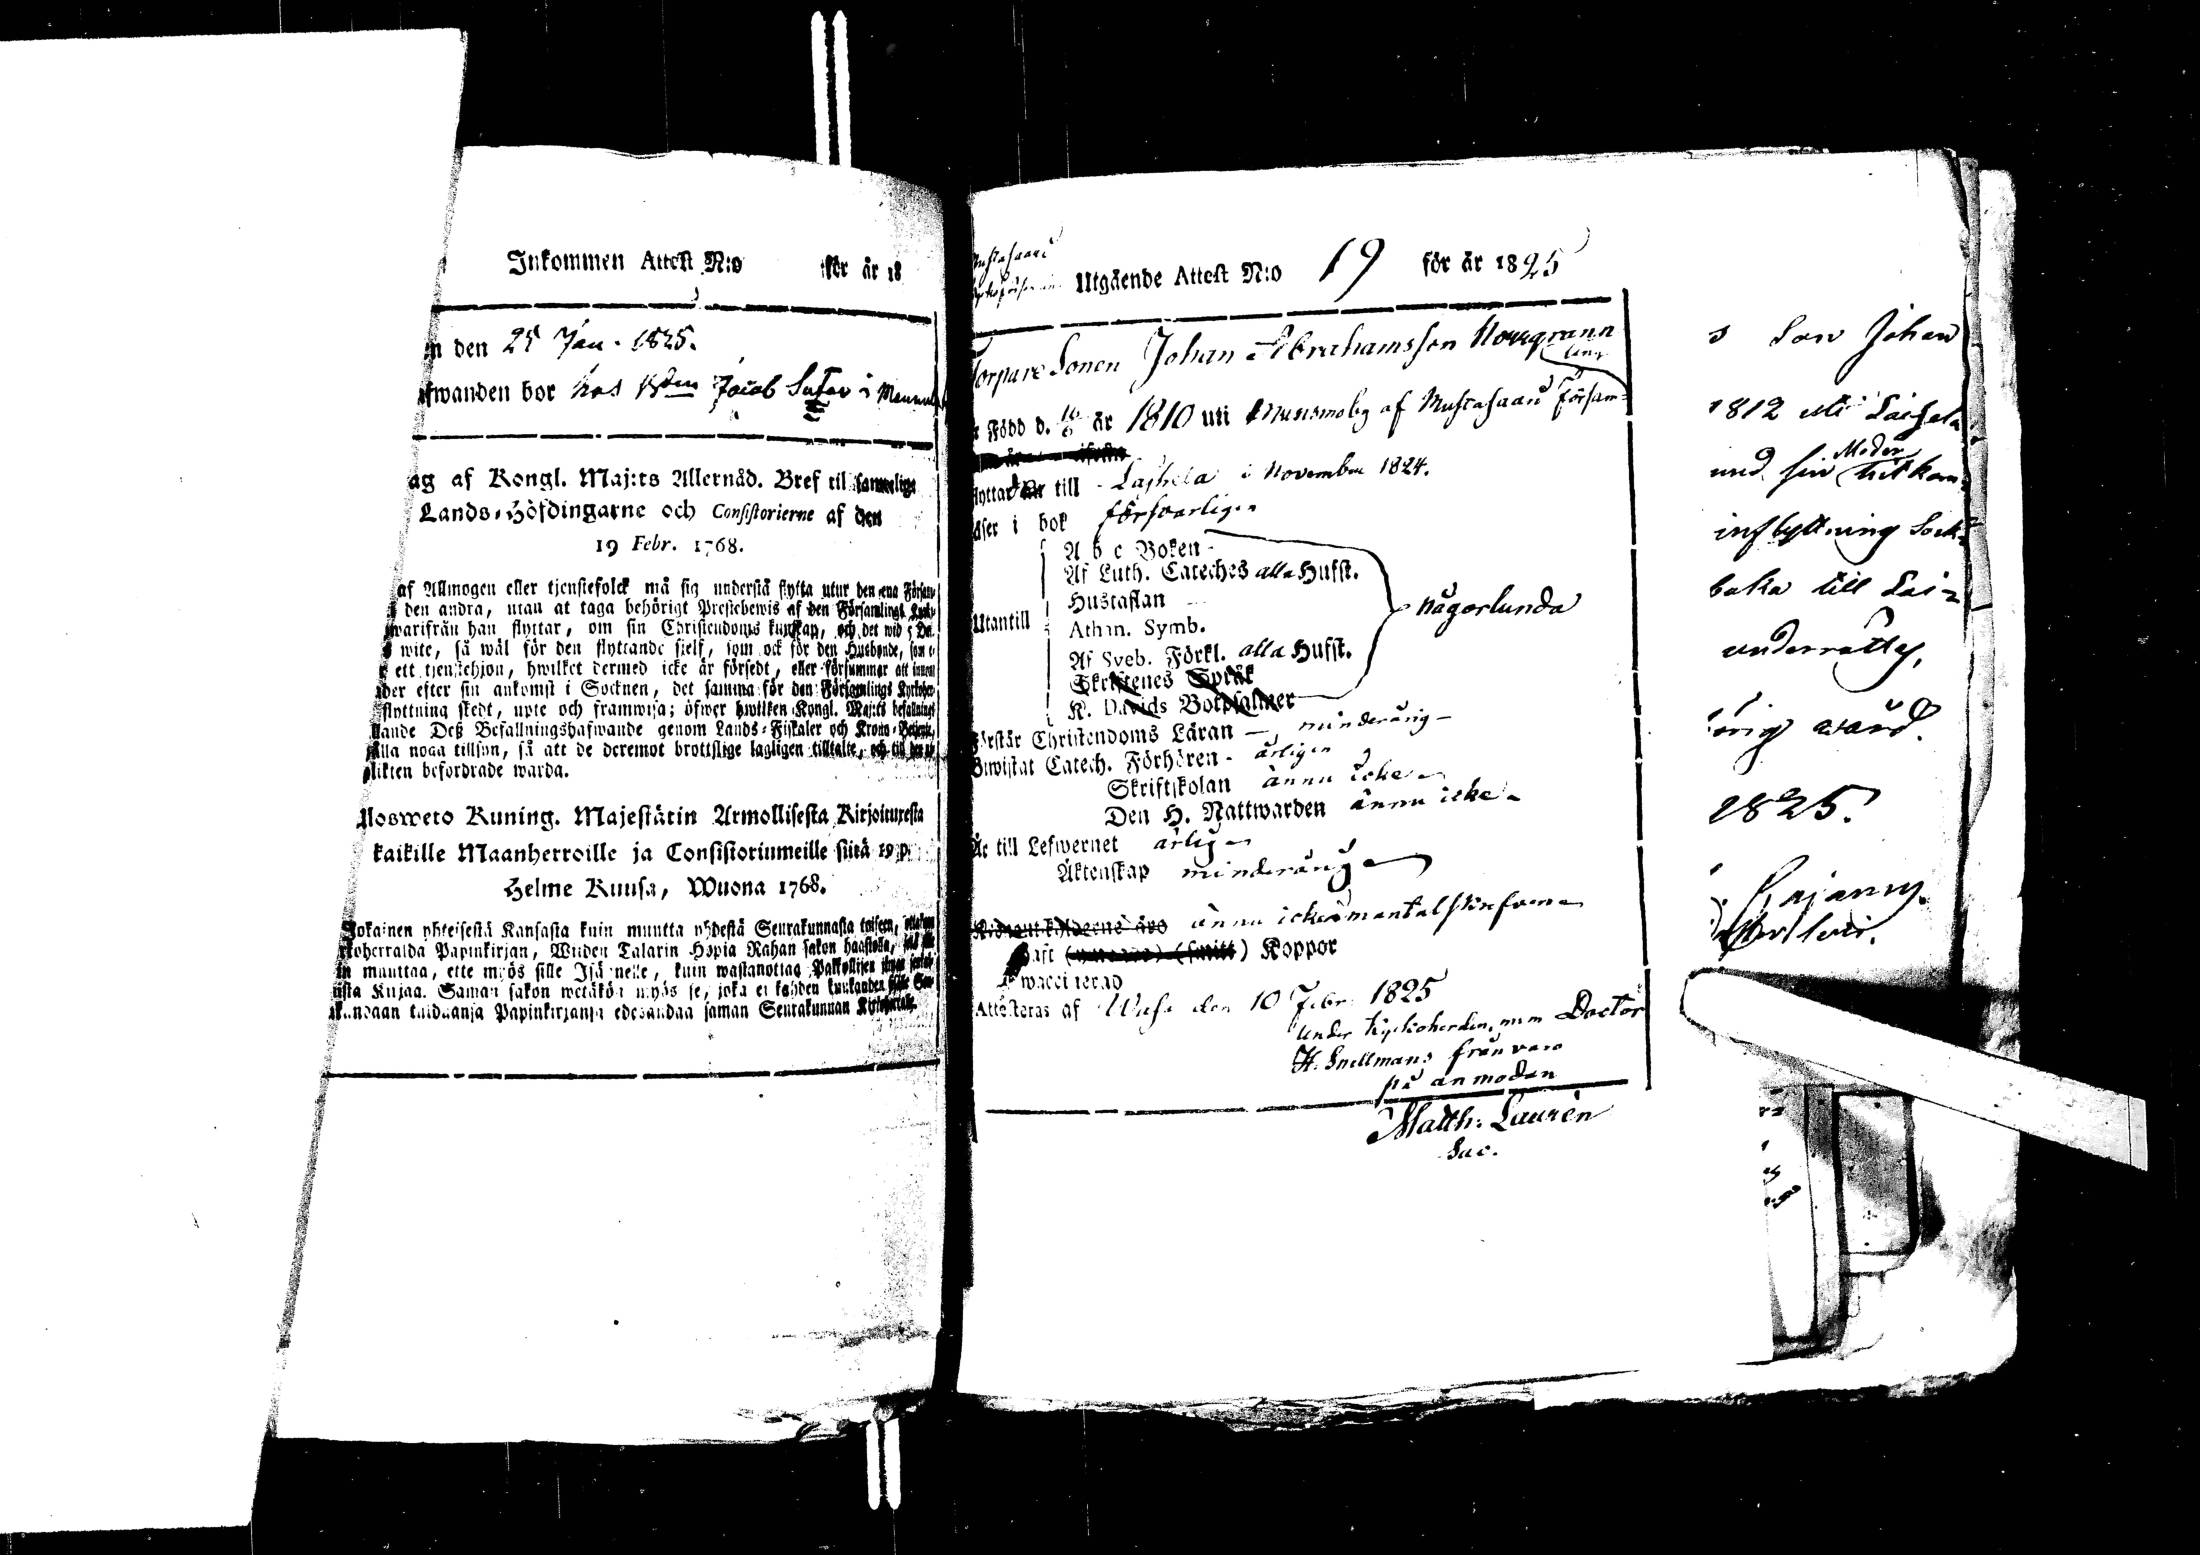 Inkommen Attest N:o för år 18
n den 25 Jan. 1825.
fwanden bor hos Jacob i
ag af Kongl. Maj:ts Allernåd. Bref til samtelige
Lands-Höfdingarne och Consistorierne af den
19 Febr. 1768.
af Allmogen eller tjenstefolck må sig understå flytta utur den ena Försam
den andra, utan at taga behörigt Prestebewis af den Församlings
warifrån han flyttar, om sin Christendoms kunskap, och det wid 5 Dal.
wite, så wäl för den flyttande sjelf, som ock för den Husbonde, som
ett tjenstehjon, hwilket dermed icke är försedt, eller försummar att innom
der efter sin ankomst i Socknen, det samma för den Församlings Kyrkoher
flyttning skedt, upte och framwisa; öfwer hwilken Kongl. Maj:ts befallning
lande Deß Befallningshafwande genom Lands-Fiskaler och Krono-Betjente,
illa noga tillsyn, så att de deremot brottslige lagligen tilltalte, och til
plikten befordrade warda.
Mosweto Kuning. Majestätin Armollisesta Kirjoituxesta
kaikille Maanherroille ja Consistoriumeille siitä 19 p.
Helme Kuusa, Wuona 1768.
Jokainen yhteisestä Kansasta kuin muutta yhdestä Seurakunnasta toiseen,
koherralda Papinkirjan, Wiiden Talarin Hopia Rahan sakon haastolla,
in muuttaa, ette myös sille Isännelle, kuin wastanottaa Palkollisen ilman
ista Kirjaa. Saman sakon wetäkön myös se, joka ei kahden kuukauden
akundaan tulduanja Papinkirjanja edesandaa saman Seurakunnan Kirkoherralle.
Mustasaari
Utgående Attest N:o 19 för år 1825
Torpare Sonen Johan Abrahamsson Norrgrann
ling
Född d. 16/6 är 1810 uti Munsmoby af Mustasaari Försam=
flyttar till Lajhela i November 1824.
äser i bok försvarligen
A b c Boken
Af Luth. Cateches alla Hufst.
Hustaflan
Utantill Athan. Symb. någorlunda
Af Sveb. Förkl. alla Hufst.
Skriftenes Språk
K. Davids Botpsalmer
Förstår Christendoms Läran – minderårig –
Biwistat Catech. Förhören - årligen
Skriftskolan ännu icke
Den H. Nattwarden ännu icke
Är till Lefwernet ärlig
Äktenskap minderårig
ännu icke mantalskrefven
haft Koppor
waccinerad
Attesteras af Wasa den 10 Febr. 1825
under Kyrkoherden, m m Doctor
H. Snellmans frånvaro
på anmodan
Matth: Laurén
Sac.
s Son Johan
1812 uti Laihela
und sin Moder hitkom
inflyttning Sock=
baka till Lai=
underrättas,
örig wård.
1825.